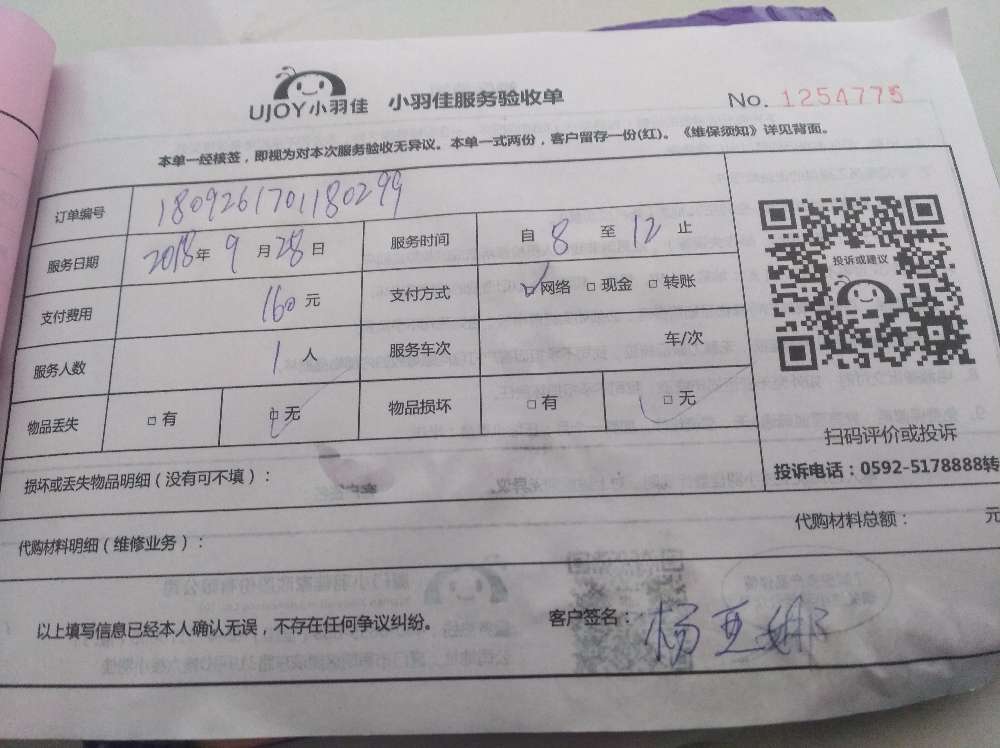 UJOY小羽佳 小羽佳服务验收单 No. 1254775
本单一经核签，即视为对本次服务验收无异议。本单一式两份，客户留存一份(红)。《维保须知》详见背面。
订单编号 1809261701180299
服务日期 2018年 9 月 28 日 服务时间 自 8 至 12 止
支付费用 160 元 支付方式 ☑网络 □现金 □转账
服务人数 1 人 服务车次 车/次
物品丢失 □有 ☑无 物品损坏 □有 ☑无
投诉或建议
扫码评价或投诉
投诉电话：0592-5178888转
损坏或丢失物品明细（没有可不填）：
代购材料明细（维修业务）： 代购材料总额： 元
以上填写信息已经本人确认无误，不存在任何争议纠纷。 客户签名：杨亚娜